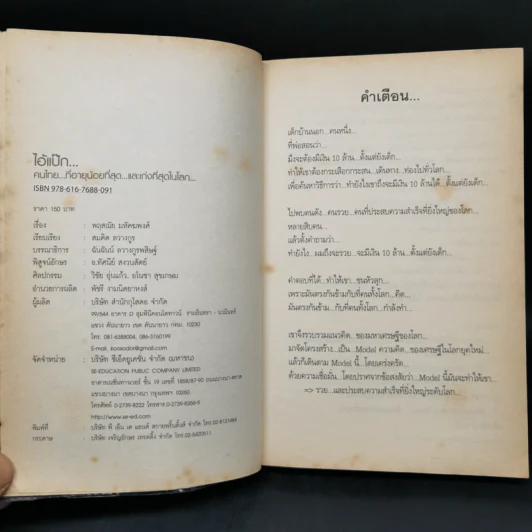 ไอ้แป๊ก...
คนไทย...ที่อายุน้อยที่สุด...และเก่งที่สุดในโลก...
ISBN 978-616-7688-091
ราคา 150 บาท
เรื่อง : พฤศณัย มหัคฆพงศ์
เรียบเรียง : สมคิด ลวางกูร
บรรณาธิการ : ฉันฉันน์ ลวางกูรพสิษฐ์
พิสูจน์อักษร : อ.ทัศนีย์ สงวนสัตย์
ศิลปกรรม : วิชัย อุ่นแก้ว. อโนชา สุขเกษม
อำนวยการผลิต : พัชรี งามนิตยาหงส์
ผู้ผลิต : บริษัท สำนักกุโสดอ จำกัด
โทร. 081-6388004, 086-3760199
จัดจำหน่าย : บริษัท ซีเอ็ดยูเคชั่น จำกัด (มหาชน)
SE-EDUCATION PUBLIC COMPANY LIMITED
แขวงบางนา เขตบางนา กรุงเทพฯ 10260
http://www.se-ed.com
พิมพ์ที่ :
กระดาษ :
คำเตือน...
เด็กบ้านนอก...คนหนึ่ง...
ที่พ่อสอนว่า...
มึงจะต้องมีเงิน 10 ล้าน...ตั้งแต่ยังเด็ก...
ทำให้เขาต้องกระเสือกกระสน...เดินทาง...ท่องไปทั่วโลก...
เพื่อค้นหาวิธีการว่า...ทำยังไงเขาถึงจะมีเงิน 10 ล้านได้...ตั้งแต่ยังเด็ก...
ไปพบคนดัง...คนรวย...คนที่ประสบความสำเร็จที่ยิ่งใหญ่ของโลก...
หลายสิบคน...
แล้วตั้งคำถามว่า...
ทำยังไง...ผมถึงจะรวย...จะมีเงิน 10 ล้าน...ตั้งแต่ยังเด็ก...
คำตอบที่ได้...ทำให้เขา...ขนหัวลุก...
เพราะมันตรงกันข้ามกับที่คนทั้งโลก...คิด...
มันตรงกันข้ามกับที่คนทั้งโลก...กำลังทำ...
เขาจึงรวบรวมแนวคิด...ของมหาเศรษฐีของโลก...
มาจัดโครงสร้าง...เป็น...Model ความคิด...ของเศรษฐีในโลกยุคใหม่...
แล้วก็เดินตาม Model นี้...โดยเคร่งครัด...
ด้วยความเชื่อมั่น...โดยปราศจากข้อสงสัยว่า...Model นี้มันจะทำให้เขา...
=> รวย...และประสบความสำเร็จที่ยิ่งใหญ่ระดับโลก...